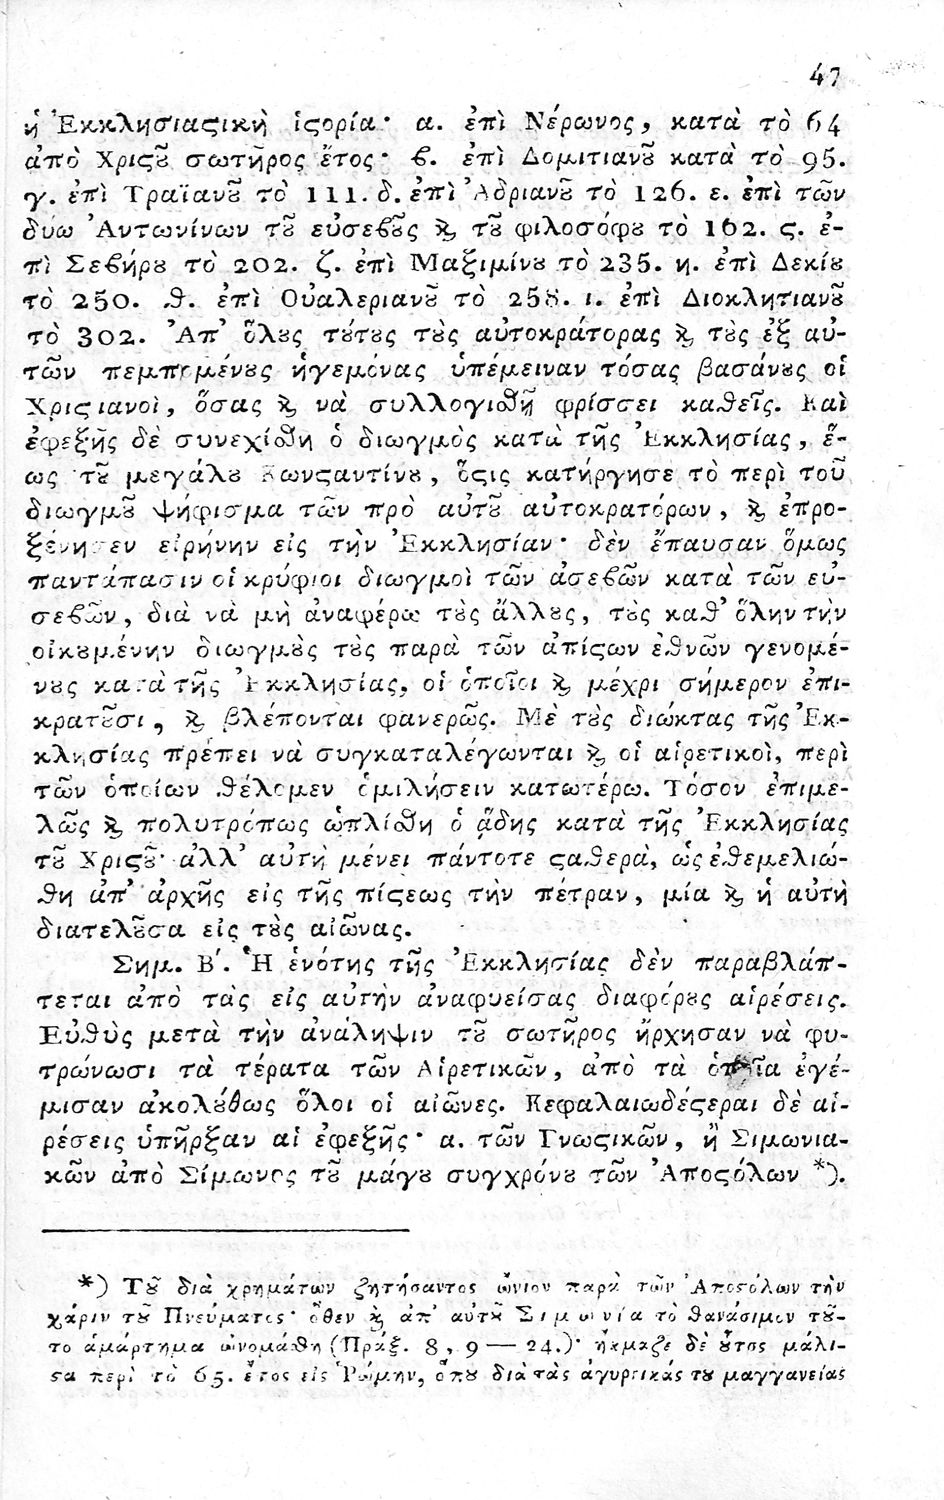 47
ἡ Ἐκκλησιαϛικὴ ἱϛορία· α. ἐπὶ Νέρωνος, κατὰ τὸ 64
ἀπὸ Χριϛȣ͂ σωτῆρος ἔτος· ϐ. ἐπὶ Δομιτιανȣ͂ κατὰ τὸ 95.
γ. ἐπὶ Τραϊανȣ͂ τὸ 111. δ. ἐπὶ Ἀδριανȣ͂ τὸ 126. ε. ἐπὶ τῶν
δύω Ἀντωνίνων τȣ͂ εὐσεϐȣ͂ς ϗ τȣ͂ φιλοσόφȣ τὸ 162. ϛ. ἐ-
πὶ Σεϐήρȣ τὸ 202. ζ. ἐπὶ Μαξιμίνȣ τὸ 235. η. ἐπὶ Δεκίȣ
τὸ 250. ϑ. ἐπὶ Οὐαλεριανȣ͂ τὸ 258. ι. ἐπὶ Διοκλητιανȣ͂
τὸ 302. Ἀπ' ὅλȣς τȣ́τȣς τȣ̀ς αὐτοκράτορας ϗ τȣ̀ς ἐξ αὐ-
τῶν πεμπομένȣς ἡγεμόνας ὑπέμειναν τόσας βασάνȣς οἱ
Χριϛιανοὶ, ὅσας ϗ νὰ συλλογιϑῇ φρίσσει καϑεῖς. Καὶ
ἐφεξῆς δὲ συνεχίϑη ὁ διωγμὸς κατὰ τῆς Ἐκκλησίας, ἕ-
ως τȣ͂ μεγάλȣ Κωνϛαντίνȣ, ὅϛις κατήργησε τὸ περὶ τοῦ
διωγμȣ͂ ψήφισμα τῶν πρὸ αὐτȣ͂ αὐτοκρατόρων, ϗ ἐπρο-
ξένησεν εἰρήνην εἰς τὴν Ἐκκλησίαν· δὲν ἔπαυσαν ὅμως
παντάπασιν οἱ κρύφιοι διωγμοὶ τῶν ἀσεϐῶν κατὰ τῶν εὐ-
σεϐῶν, διὰ νὰ μὴ ἀναφέρω τȣ̀ς ἄλλȣς, τȣ̀ς καϑ' ὅλην τὴν
οἰκȣμένην διωγμȣ̀ς τȣ̀ς παρὰ τῶν ἀπίϛων ἐϑνῶν γενομέ-
νȣς κατὰ τῆς Ἐκκλησίας, οἱ ὁποῖοι ϗ μέχρι σήμερον ἐπι-
κρατȣ͂σι, ϗ βλέπονται φανερῶς. Μὲ τȣ̀ς διώκτας τῆς Ἐκ-
κλησίας πρέπει νὰ συγκαταλέγωνται ϗ οἱ αἱρετικοὶ, περὶ
τῶν ὁποίων ϑέλομεν ὁμιλήσειν κατωτέρω. Τόσον ἐπιμε-
λῶς ϗ πολυτρόπως ὡπλίϑη ὁ ᾅδης κατὰ τῆς Ἐκκλησίας
τȣ͂ Χριϛȣ͂· ἀλλ' αὐτὴ μένει πάντοτε ϛαϑερὰ, ὡς ἐϑεμελιώ-
ϑη ἀπ' ἀρχῆς εἰς τῆς πίϛεως τὴν πέτραν, μία ϗ ἡ αὐτὴ
διατελȣ͂σα εἰς τȣ̀ς αἰῶνας.
Σημ. Β΄. Ἡ ἑνότης τῆς Ἐκκλησίας δὲν παραβλάπ-
τεται ἀπὸ τὰς εἰς αὐτὴν ἀναφυείσας διαφόρȣς αἱρέσεις.
Εὐϑὺς μετὰ τὴν ἀνάληψιν τȣ͂ σωτῆρος ἤρχησαν νὰ φυ-
τρώνωσι τὰ τέρατα τῶν Αἱρετικῶν, ἀπὸ τὰ ὁποῖα ἐγέ-
μισαν ἀκολȣ́θως ὅλοι οἱ αἰῶνες. Κεφαλαιωδέϛεραι δὲ αἱ-
ρέσεις ὑπῆρξαν αἱ ἐφεξῆς· α. τῶν Γνωϛικῶν, ἢ Σιμωνια-
κῶν ἀπὸ Σίμωνος τȣ͂ μάγȣ συγχρόνȣ τῶν Ἀποϛόλων *).
*) Τȣ͂ διὰ χρημάτων ζητήσαντος ὤνιον παρὰ τῶν Ἀποϛόλων τὴν
χάριν τȣ͂ Πνεύματος· ὅθεν ϗ ἀπ' αὐτȣ͂ Σιμωνία τὸ ϑανάσιμον τȣ͂-
το ἁμάρτημα ὠνομάϑη (Πράξ. 8, 9 — 24.)· ἤκμαζε δὲ ȣ͗͂τος μάλι-
ϛα περὶ τὸ 65. ἔτος εἰς Ῥώμην, ὅπȣ διὰ τὰς ἀγυρτικάς τȣ μαγγανείας